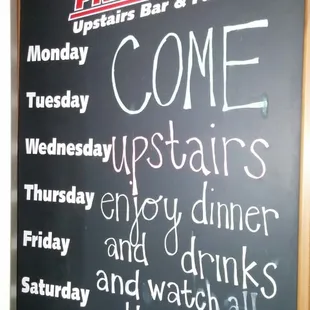 Upstairs Bar &
Monday
COME
Tuesday
Wednesday upstairs
Thursday enjoy dinner
Friday and drinks
Saturday and watch all